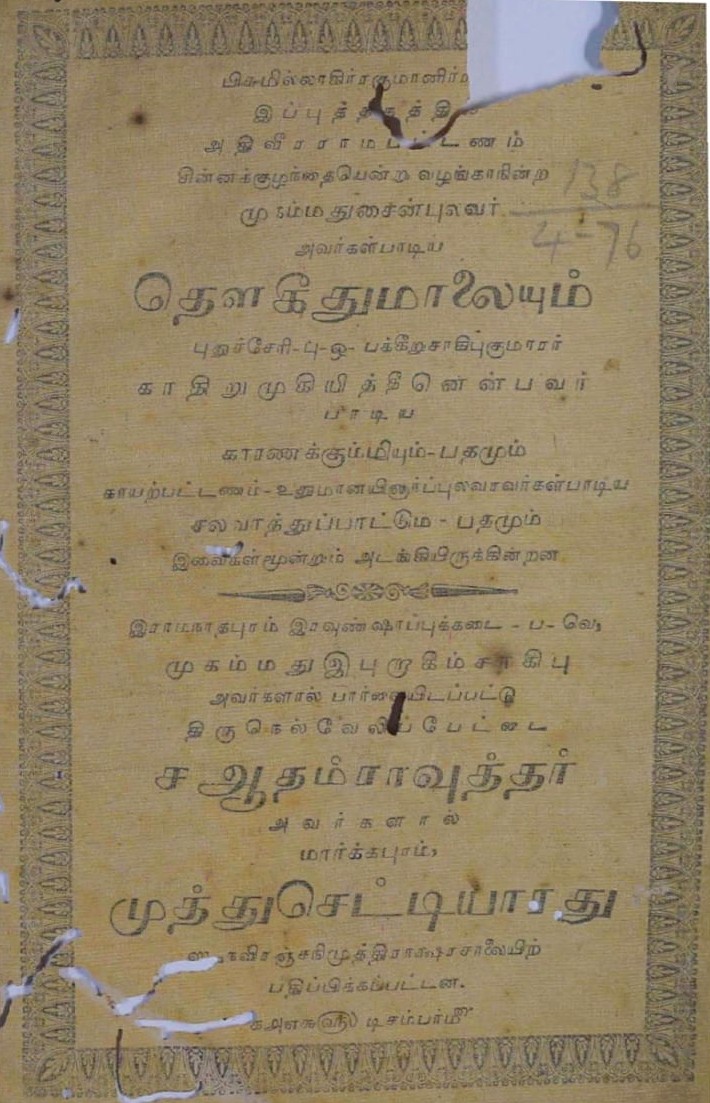 பிசுமில்லாகிர்ரகுமானிர்
இப்புத்தகத்தில்
அதிவீரராமபட்டணம்
சின்னக்குழந்தையென்று வழங்காநின்ற
முகம்மதுசைன்புலவர்
138
4-76
அவர்கள்பாடிய
தௌகீதுமாலையும்
புதுச்சேரி-பு-ஒ- பக்கீறசாகிபுகுமாரர்
காதிறுமுகியித்தீனென்பவர்
பாடிய
காரணக்கும்மியும்-பதமும்
காயற்பட்டணம்-உதுமானயினார்ப்புலவரவர்கள்பாடிய
சலவாத்துப்பாட்டும் - பதமும்
இவைகள்மூன்றும் அடங்கியிருக்கின்றன
இராமநாதபுரம் இரவுண்ஷாப்புக்கடை - ப- வெ,
முகம்மதுஇபுறாகிம்சாகிபு
அவர்களால் பார்வையிடப்பட்டு
திருநெல்வேலிப்பேட்டை
ச ஆதம்ராவுத்தர்
அவர்களால்
மார்க்கபுரம்,
முத்துசெட்டியாரது
பதிப்பிக்கப்பட்டன.
டிசம்பர்மீ